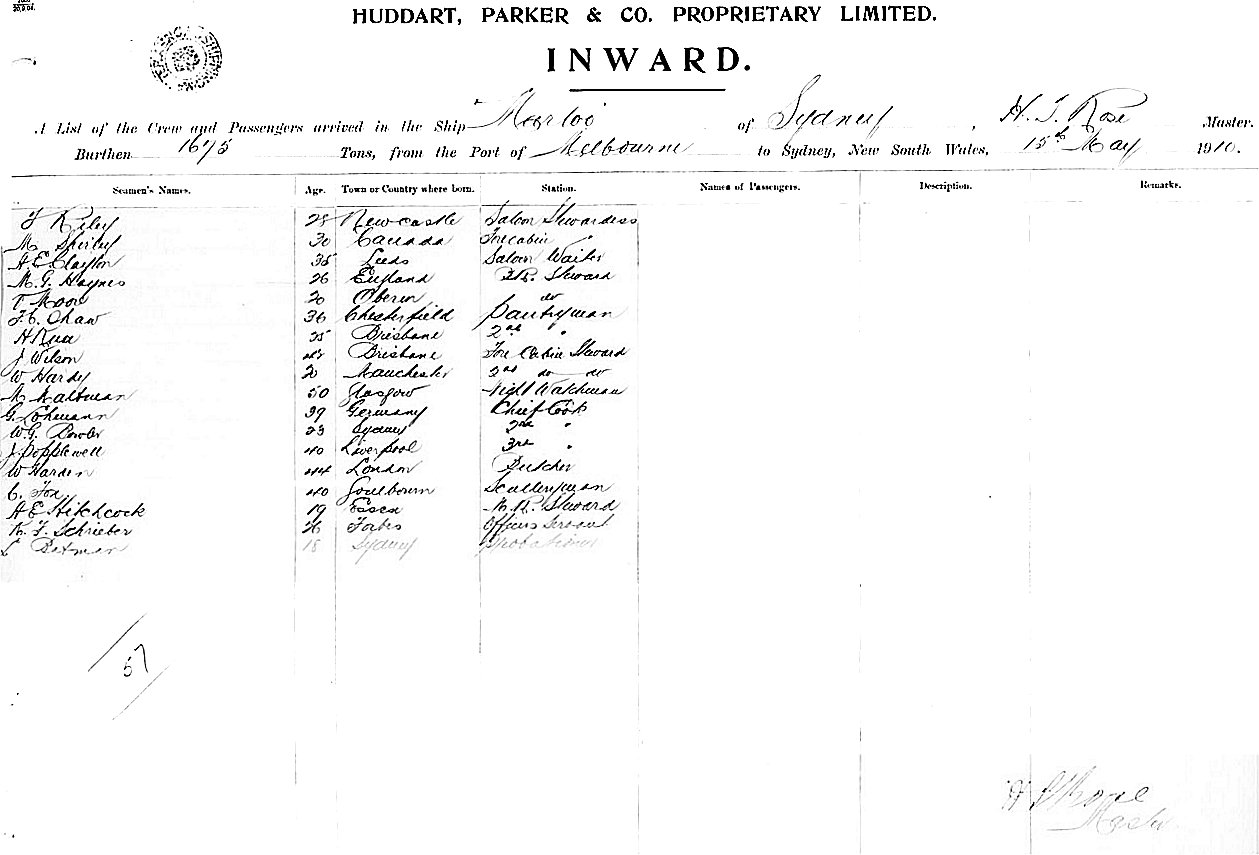 HUDDART, PARKER & CO. PROPRIETARY LIMITED.
INWARD.
A List of the Crew and Passengers arrived in the Ship Moorloo of Sydney, H. J. Rose Master.
Burthen 1675 Tons, from the Port of Melbourne to Sydney, New South Wales, 15th May 1910.
Seamen's Names. Age. Town or Country where born. Station. Names of Passengers. Description. Remarks.
Riley 28 Newcastle Saloon Stewardess
M Shirley 30 Canada Forecabin "
H. E. Clayton 35 Leeds Saloon Waiter
M. G. Haynes 26 England Steward
T Moor 20 do
Chaw 36 Chesterfield Pantryman
H Rua 35 Brisbane 2nd "
J Wilson Brisbane Fore Cabin Steward
W Hardy Manchester 2nd do do
M Waltman 50 Glasgow Night Watchman
G. Lohmann 39 Germany Chief Cook
W. G. Bowler 23 Sydney 2nd "
J. Popplewell 40 Liverpool 3rd "
W Harden 44 London Butcher
C. Fox 40 Goulbourn Sculleryman
A E Hitchcock 19 Essex M. R. Steward
Schrieber 26 Forbes Officers Servant
18 Sydney
57
H J Rose
Master